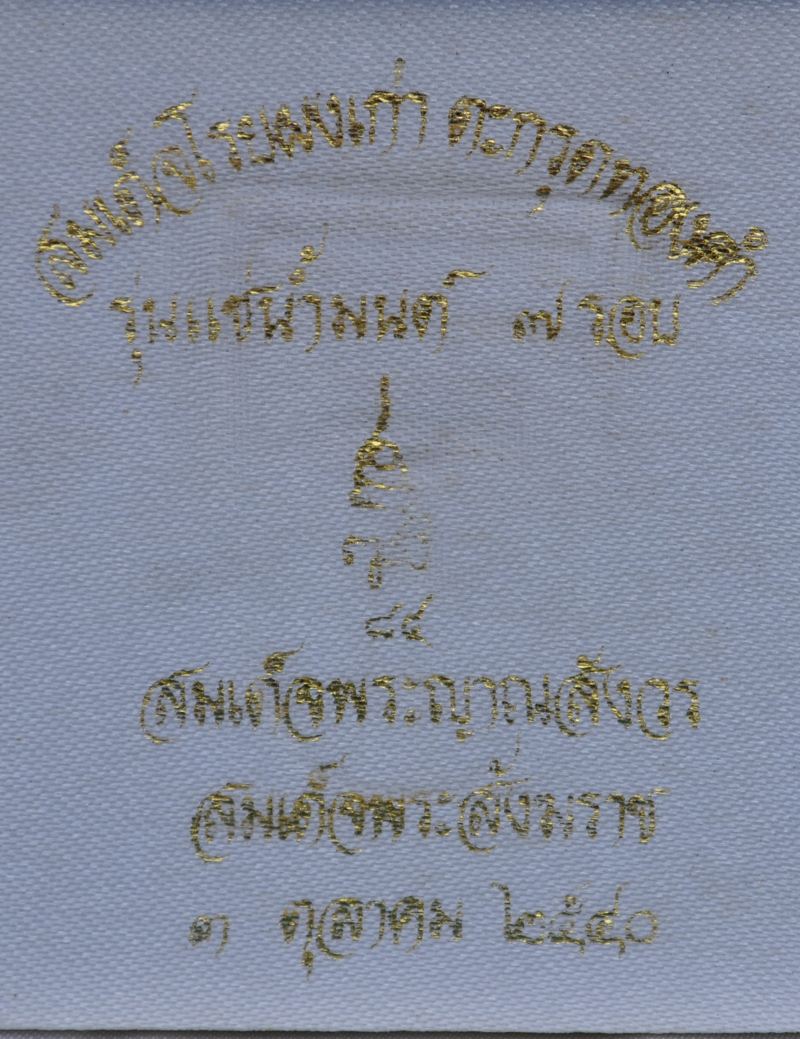 สมเด็จโรยผงเก่า ตะกรุดทองคำ
รุ่นแช่น้ำมนต์ ๗ รอบ
๘๔
สมเด็จพระญาณสังวร
สมเด็จพระสังฆราช
๓ ตุลาคม ๒๕๔๐